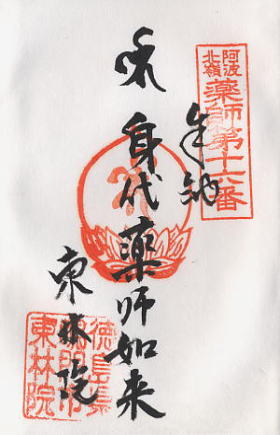 阿波
北嶺
薬師第十六番
奉納
身代薬師如来
東林院
徳島県
鳴門市
東林院